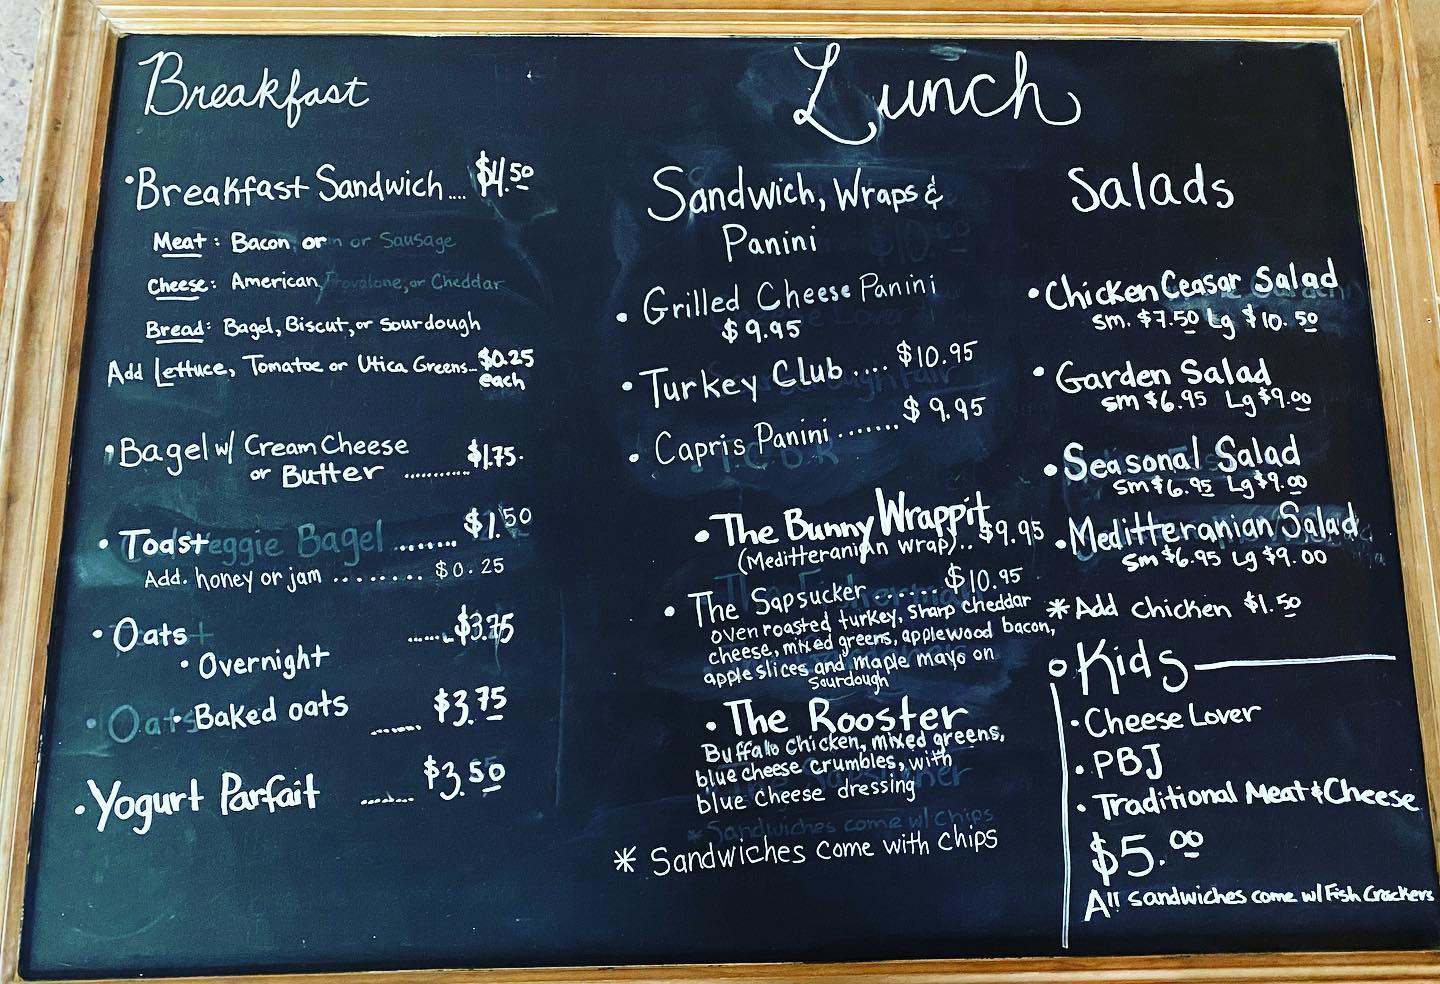 Breakfast
• Breakfast Sandwich.... $4.50
Meat: Bacon or n or Sausage
Cheese: American, Provalone, or Cheddar
Bread: Bagel, Biscut, or Sourdough
Add Lettuce, Tomatoe or Utica Greens... $0.25
each
• Bagel w/ Cream Cheese
or Butter .......... $1.75.
• Toast eggie Bagel ........ $1.50
Add. honey or jam ........ $0.25
• Oats ....... $3.75
• Overnight
• Oats • Baked oats ....... $3.75
• Yogurt Parfait ........ $3.50
Lunch
Sandwich, Wraps &
Panini
• Grilled Cheese Panini
$9.95
• Turkey Club .... $10.95
• Capris Panini ....... $9.95
• The Bunny Wrappit
(Meditteranian wrap).. $9.95
• The Sapsucker ....... $10.95
oven roasted turkey, sharp cheddar
cheese, mixed greens, applewood bacon,
apple slices and maple mayo on
Sourdough
• The Rooster
Buffalo Chicken, mixed greens,
blue cheese crumbles, with
blue Cheese dressing
* Sandwiches come w/ Chips
* Sandwiches come with chips
Salads
• Chicken Ceasar Salad
sm. $7.50 Lg $10.50
• Garden Salad
sm $6.95 Lg $9.00
• Seasonal Salad
sm $6.95 Lg $9.00
• Meditteranian Salad
sm $6.95 Lg $9.00
* Add chicken $1.50
Kids
• Cheese Lover
• PBJ
• Traditional Meat & Cheese
$5.00
All sandwiches come w/ Fish Crackers